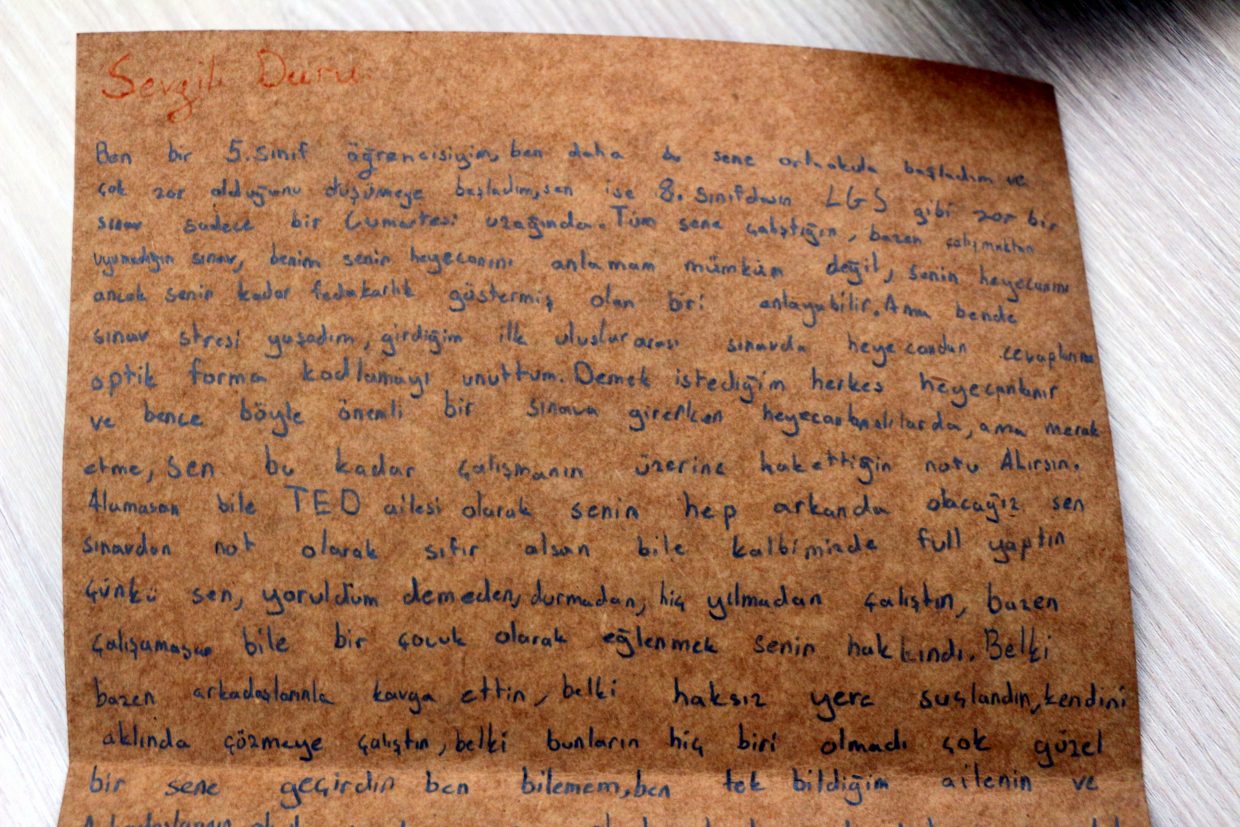 Sevgili Duru
Ben bir 5. sınıf öğrencisiyim, ben daha bu sene ortaokula başladım ve
çok zor olduğunu düşünmeye başladım, sen ise 8. sınıfdasın LGS gibi zor bir
sınav sadece bir Cumartesi uzağında. Tüm sene çalıştığın, bazen çalışmaktan
uyumadığın sınav, benim senin heyecanını anlamam mümkün değil, senin heyecanını
ancak senin kadar fedakarlık göstermiş olan biri anlayabilir. Ama bende
sınav stresi yaşadım, girdiğim ilk uluslararası sınavda heyecandan cevaplarımı
optik forma kodlamayı unuttum. Demek istediğim herkes heyecanlanır
ve bence böyle önemli bir sınava girerken heyecanlanılırda, ama merak
etme, sen bu kadar çalışmanın üzerine hakettiğin notu Alırsın.
Alamasan bile TED ailesi olarak senin hep arkanda olacağız sen
sınavdan not olarak sıfır alsan bile kalbimizde full yaptın
çünkü sen, yoruldum demeden, durmadan, hiç yılmadan çalıştın, bazen
bile bir çocuk olarak eğlenmek senin hakkındı. Belki
bazen arkadaşlarınla kavga ettin, belki haksız yere suçlandın, kendini
aklında çözmeye çalıştın, belki bunların hiç biri olmadı çok güzel
bir sene geçirdin ben bilemem, ben tek bildiğim ailenin ve